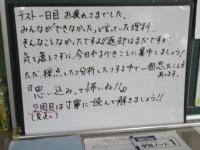 テスト一日目 お疲れさまでした。
みんなが「できなかった」と言っていた理科…
そんなことなかったですよ!!返却はまだですが、
気を落とさずに今日やるべきことに集中しましょう!
ただ、採点したり分析したりする中で一個思ったことが
あります。
『思い込みで帰しね!!』
2周目は丁寧に読んで解きましょう!!
(見直し)
学習ノート